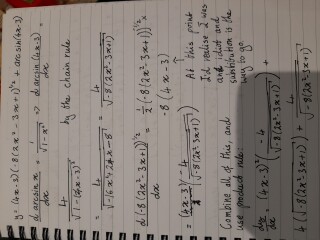 y = (4x-3)(-8(2x²-3x+1))^1/2 + arcsin(4x-3)
d arcsin x / dx = 1/√(1-x²) => d arcsin(4x-3) / dx =
4/√(1-(4x-3)²) by the chain rule
= 4/√(-16x²+24x-8) = 4/√(-8(2x²-3x+1))
d(-8(2x²-3x+1))^1/2 / dx = 1/2(-8(2x²-3x+1))^-1/2 x
-8(4x-3)
= (4x-3)·-4 / √(-8(2x²-3x+1))
At this point
I'd realise I was
an idiot and
substitution is the
way to go.
Combine all of this, and
use product rule:
dy/dx = (4x-3)²(-4) / √(-8(2x²-3x+1)) +
4(√(-8(2x²-3x+1))) + 4/√(-8(2x²-3x+1))